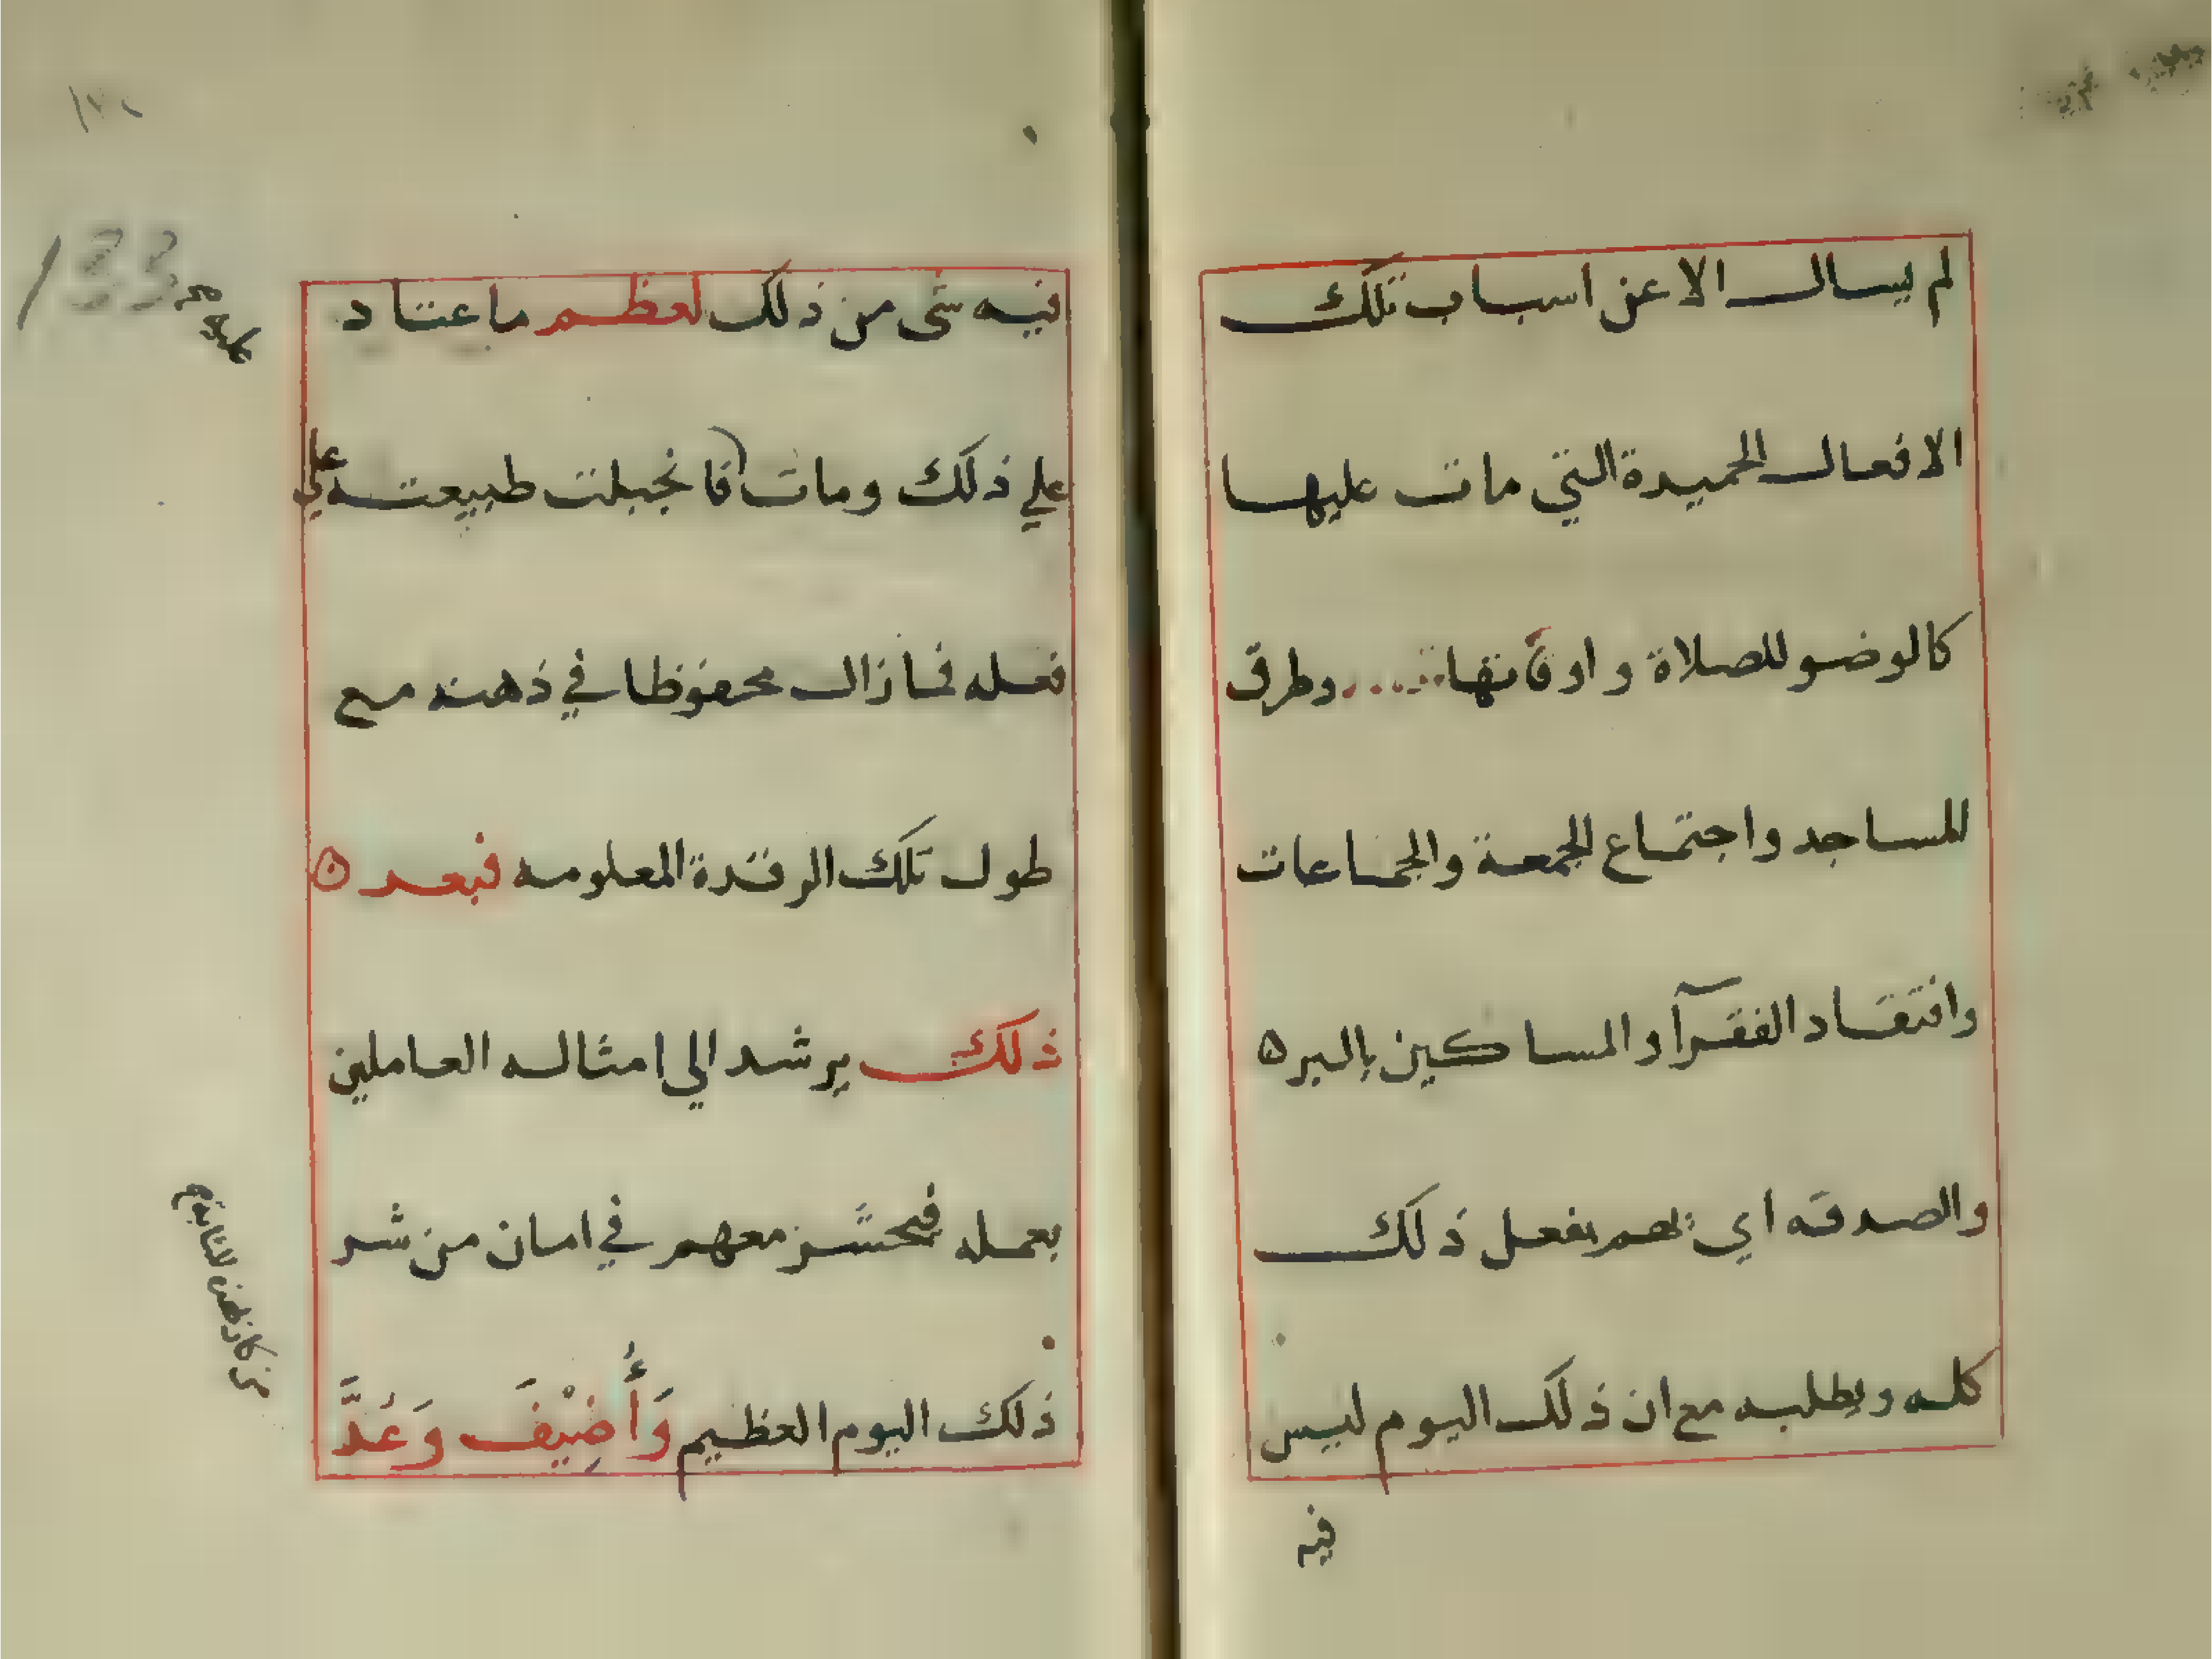 لم يسال الا عن اسباب تلك
الافعال الحميدة التي مات عليها
كالوضو للصلاة واوقاتها وطرق
للمساجد واجتماع الجمعة والجماعات
وافتقاد الفقرآ والمساكين بالبر ه
والصدقه اي نعم يفعل ذلك
كله ويطلبه مع ان ذلك اليوم ليس
فيه
١٧٢
133
فيه شي من ذلك لعظم ما عتاد
علي ذلك ومات فانجبلت طبيعته علي
فعله فما زال محفوظا في ذهنه مع
طول تلك الرقدة المعلومه فبعد ه
ذلك يرشد الي امثاله العاملين
بعمله فيحشر معهم في امان من شر
ذلك اليوم العظيم وَأُضِيْفَ وَعُدَّ